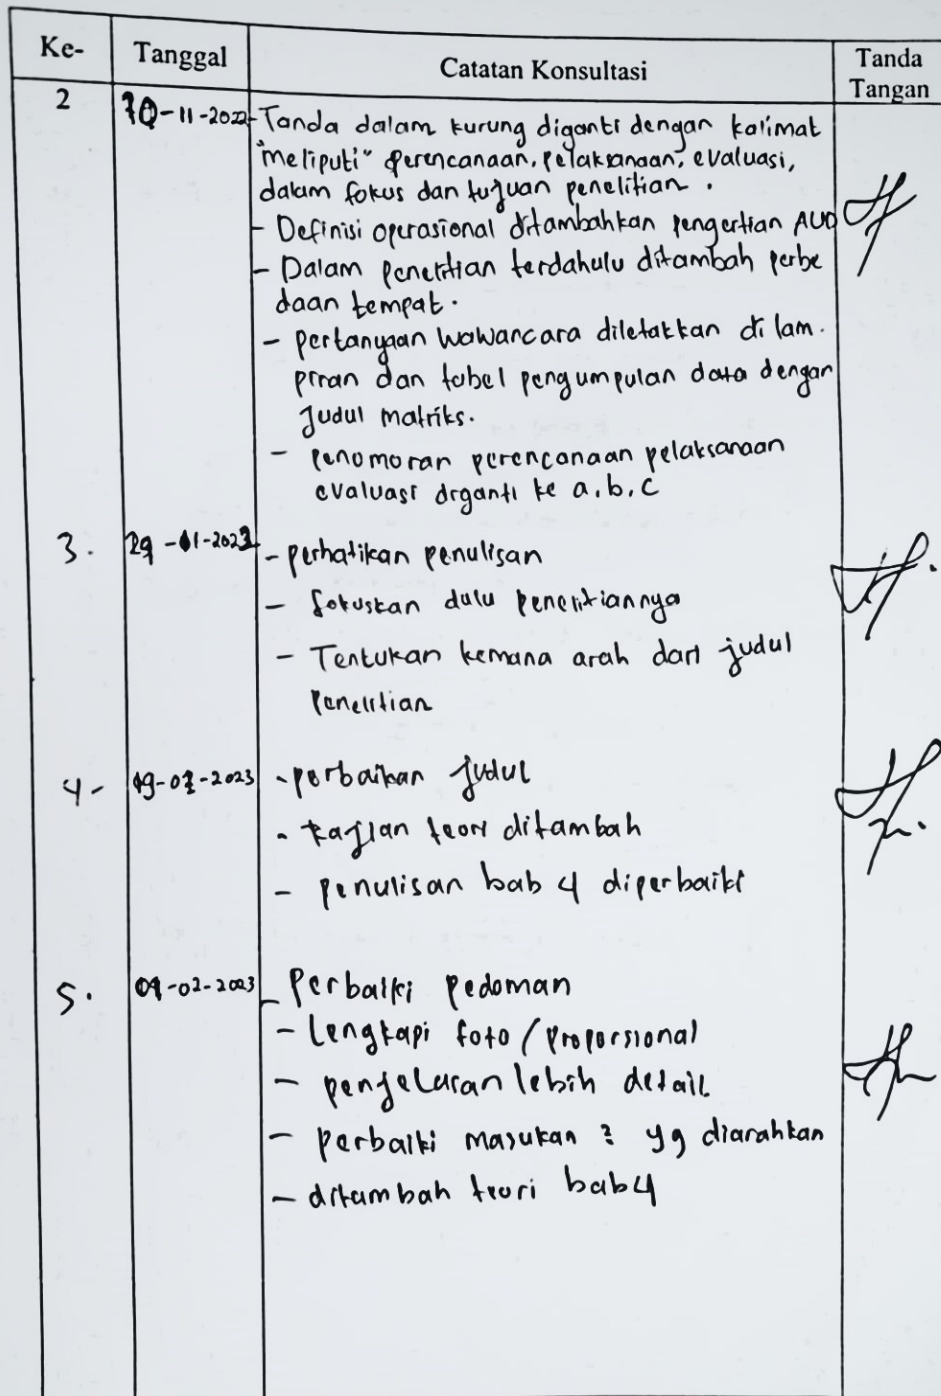 Ke- Tanggal Catatan Konsultasi Tanda Tangan
2 30-11-2022 - Tanda dalam kurung diganti dengan kalimat
"meliputi" perencanaan, pelaksanaan, evaluasi,
dalam fokus dan tujuan penelitian.
- Definisi operasional ditambahkan pengertian AUD
- Dalam penelitian terdahulu ditambah perbe
daan tempat.
- pertanyaan wawancara diletakkan di lam.
piran dan tabel pengumpulan data dengan
judul matriks.
- penomoran perencanaan pelaksanaan
evaluasi diganti ke a, b, c
3. -2023 - perhatikan penulisan
- fokuskan dulu penelitiannya
- Tentukan kemana arah dari judul
penelitian
4- -2023 - perbaikan judul
- kajian teori ditambah
- penulisan bab 4 diperbaiki
5. -02-2023 - Perbaiki pedoman
- lengkapi foto / proporsional
- penjelasan lebih detail
- perbaiki masukan 2 yg diarahkan
- ditambah teori bab 4